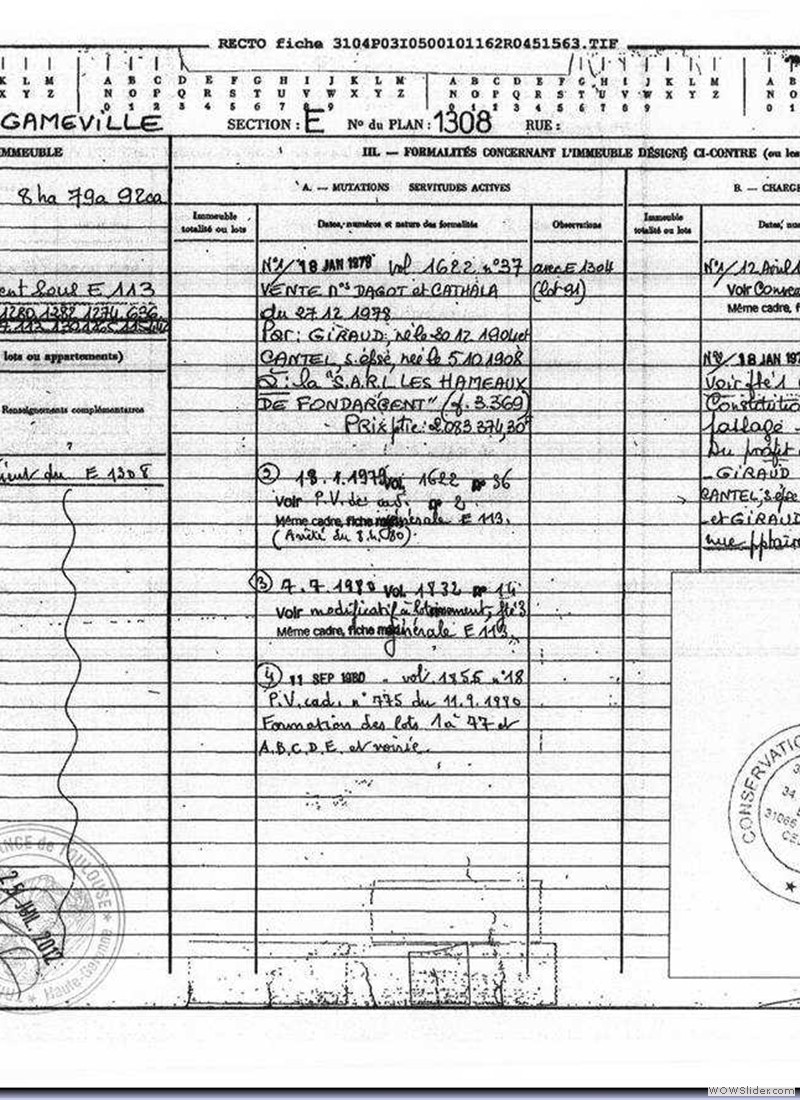 RECTO fiche 3104P03I0500101162R0451563.TIF
K L M A B C D E F G H I J K L M A B C D E F G H I J K L M A B
X Y Z N O P Q R S T U V W X Y Z N O P Q R S T U V W X Y Z N O
0 1 2 3 4 5 6 7 8 9 0 1 2 3 4 5 6 7 8 9 0 1
GAMEVILLE SECTION : E N° du PLAN : 1308 RUE :
IMMEUBLE
III. — FORMALITÉS CONCERNANT L'IMMEUBLE DÉSIGNÉ CI-CONTRE (ou les
8 ha 79a 92ca
A. — MUTATIONS SERVITUDES ACTIVES
B. — CHARGE
Immeuble
totalité ou lots
Dates, numéros et nature des formalités
Observations
Immeuble
totalité ou lots
Dates, nu
sous E 113
1280.1282.1274.636.
lots ou appartements)
Renseignements complémentaires
du E 1308
N°1/ 18 JAN 1979 Vol 1622 n°37
avec E 1304
(lot 91)
VENTE Nos DAGOT et CATHALA
du 27 12 1978
Par : GIRAUD, né le 20 12 1904 et
CANTEL, s. épse, née le 5.10.1908
à : la "S.A.R.L. LES HAMEAUX
DE FONDARGENT" (f. 3.369)
Prix ptie : 2.083.374,30F
② 18.1.1979 Vol. 1622 n° 36
Voir P.V. de cad. n° 2.
Même cadre, fiche générale E 113.
③ 7.7.1980 Vol. 1832 n° 14
Voir modificatif à lotissement, fté 3
Même cadre, fiche générale E 113.
④ 11 SEP 1980 - vol. 1855 n°18
P.V. cad. n° 775 du 11.9.1980
Formation des lots 1 à 77 et
A.B.C.D.E. et voirie.
N°1/ 12 Avril 1
Voir
Même cadre, f
18 JAN 197
Voir fté 1
Constitutio
passage
Du profit
- GIRAUD
CANTEL, s. épse
- et GIRAUD
nue-pptaire
CONSERVATIO
31066
TOULOUSE
Haute-Garonne
25 JUIL. 2012
WOWSlider.com